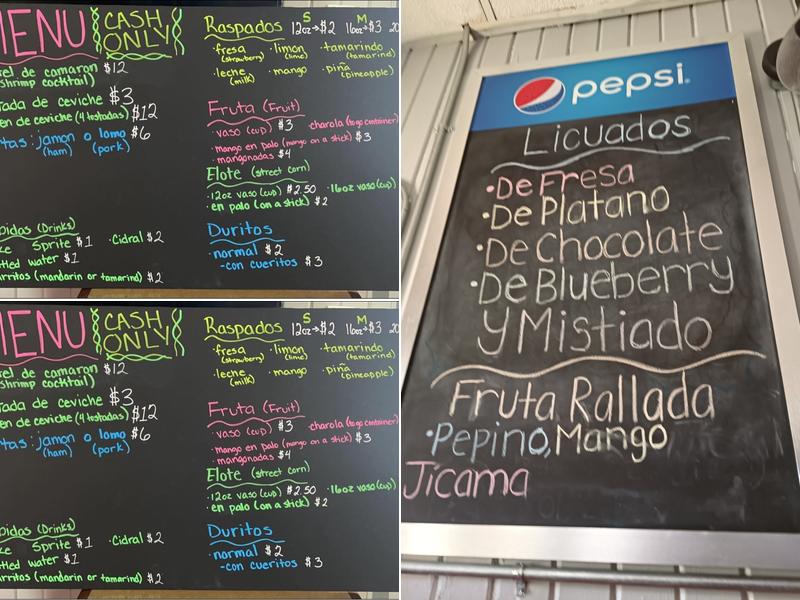 MENU
CASH
ONLY
el de camaron $12
shrimp cocktail)
ada de ceviche $3
en de ceviche (4 tostadas) $12
tas: jamon o lomo $6
(ham) (pork)
pidos (Drinks)
ke Sprite $1 ·Cidral $2
tled water $1
arritos (mandarin or tamarind) $2
Raspados S 12oz→$2 M 16oz→$3 20
·fresa ·limon ·tamarindo
(strawberry) (lime) (tamarind)
·leche ·mango ·piña
(milk) (pineapple)
Fruta (Fruit)
·vaso (cup) $3 ·charola (to go container)
·mango en palo (mango on a stick) $3
·mangonadas $4
Elote (street corn)
·12oz vaso (cup) $2.50 ·16oz vaso (cup)
·en palo (on a stick) $2
Duritos
·normal $2
-con cueritos $3
MENU
CASH
ONLY
el de camaron $12
shrimp cocktail)
ada de ceviche $3
en de ceviche (4 tostadas) $12
tas: jamon o lomo $6
(ham) (pork)
pidos (Drinks)
ke Sprite $1 ·Cidral $2
tled water $1
arritos (mandarin or tamarind) $2
Raspados S 12oz→$2 M 16oz→$3 20
·fresa ·limon ·tamarindo
(strawberry) (lime) (tamarind)
·leche ·mango ·piña
(milk) (pineapple)
Fruta (Fruit)
·vaso (cup) $3 ·charola (to go container)
·mango en palo (mango on a stick) $3
·mangonadas $4
Elote (street corn)
·12oz vaso (cup) $2.50 ·16oz vaso (cup)
·en palo (on a stick) $2
Duritos
·normal $2
-con cueritos $3
pepsi
Licuados
·De Fresa
·De Platano
·De Chocolate
·De Blueberry
y Mistiado
Fruta Rallada
·Pepino, Mango
Jicama